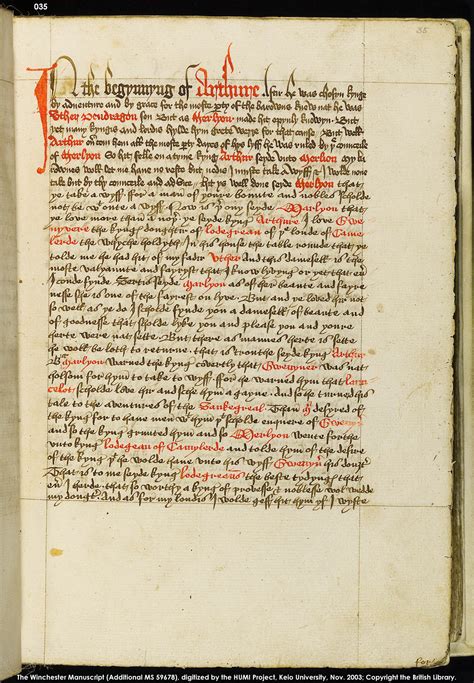 035
35
In the begynnyng of Arthure. Aftir he was chosyn kynge
by adventure and by grace for the moste party of the barowns knew nat he was
Uther Pendragon son But as Merlyon made hit opynly knowyn. But
yet many kyngis and lordis hylde hym grete werre for that cause. But well
Arthur ovir com hem all the moste party dayes of hys lyff he was ruled by the counceile
of Merlyon. So hit felle on a tyme kyng Arthur seyde unto Merlion My ba
rownes woll let me have no reste but nedis I muste take a wyff & I wolde none
take but by thy counceile and advice. hit ys well done seyde Merlyon that
ye take a wyff for a man of youre bounte and nobles scholde
not be wtoute a wyff. Now is ther ony seyde Marlyon that
ye love more than a nothir ye seyde kyng Arthure I love Gwe
nyvere the kyngis doughtir of lodegrean of ye londe of Came
lerde the whyche holdyth In his house the table rounde that ye
tolde me he had hit of my fadir Uther And this damesell is the
moste valyaunte and fayryst that I know lyvyng or yet that evir
I coude fynde Sertis seyde Marlyon as of her beaute and fayre
nesse she is one of the fayrest on lyve. But and ye loved hir not
so well as ye do I scholde fynde you a damesell of beaute and
of goodnesse that sholde lyke you and please you and youre
herte were nat sette. But there as mannes herte is sette
he woll be loth to returne. that is trouthe seyde kyng Arthur
But Marlyon warned the kyng covertly that Gwenyver was nat
holsom for hym to take to wyff. ffor he warned hym that laun
celot scholde love hir and sche hym a gayne. And so he turned his
tale to the aventures of the Sankegreal Than he desyred of
the kyng for to have men wt hym yt scholde enquere of Gwenyver
and so the kyng graunted hym and so Merlyon wente forthe
unto kyng lodegean of Camylerde and tolde hym of the desire
of the kyng yt he wolde have unto his wyff Gwenyver his doughtir
That is to me seyde kyng lodegreauns the beste tydynges that
evir I herde. that so worthy a kyng of prouesse & noblesse wol wedde
my doughtir. And as for my londis I wolde geff hit hym yf I wyste
The Winchester Manuscript (Additional MS 59678), digitized by the HUMI Project, Keio University, Nov. 2003; Copyright the British Library.